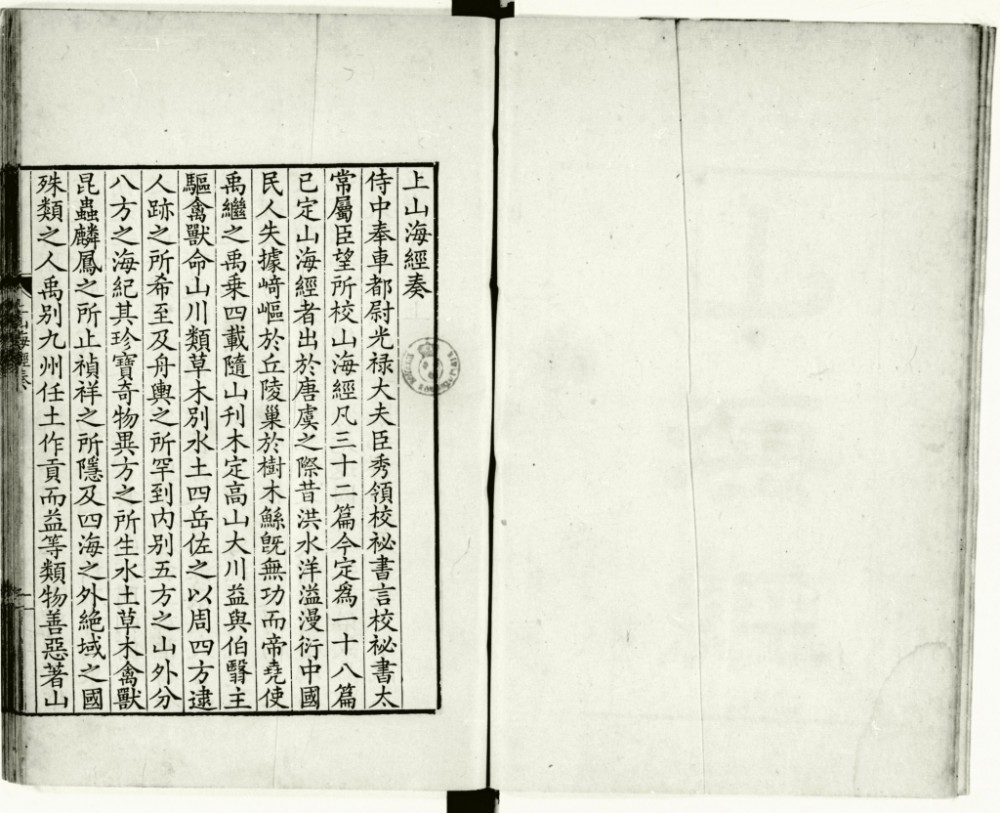 上山海經奏
侍中奉車都尉光祿大夫臣秀領校祕書言校祕書太
常屬臣望所校山海經凡三十二篇今定爲一十八篇
已定山海經者出於唐虞之際昔洪水洋溢漫衍中國
民人失據崎嶇於丘陵巢於樹木鯀旣無功而帝堯使
禹繼之禹乘四載隨山刋木定高山大川益與伯翳主
驅禽獸命山川類草木別水土四岳佐之以周四方逮
人跡之所希至及舟輿之所罕到内別五方之山外分
八方之海紀其珍寶奇物異方之所生水土草木禽獸
昆蟲麟鳳之所止禎祥之所隱及四海之外絶域之國
殊類之人禹别九州任土作貢而益等類物善惡著山
山海經奏